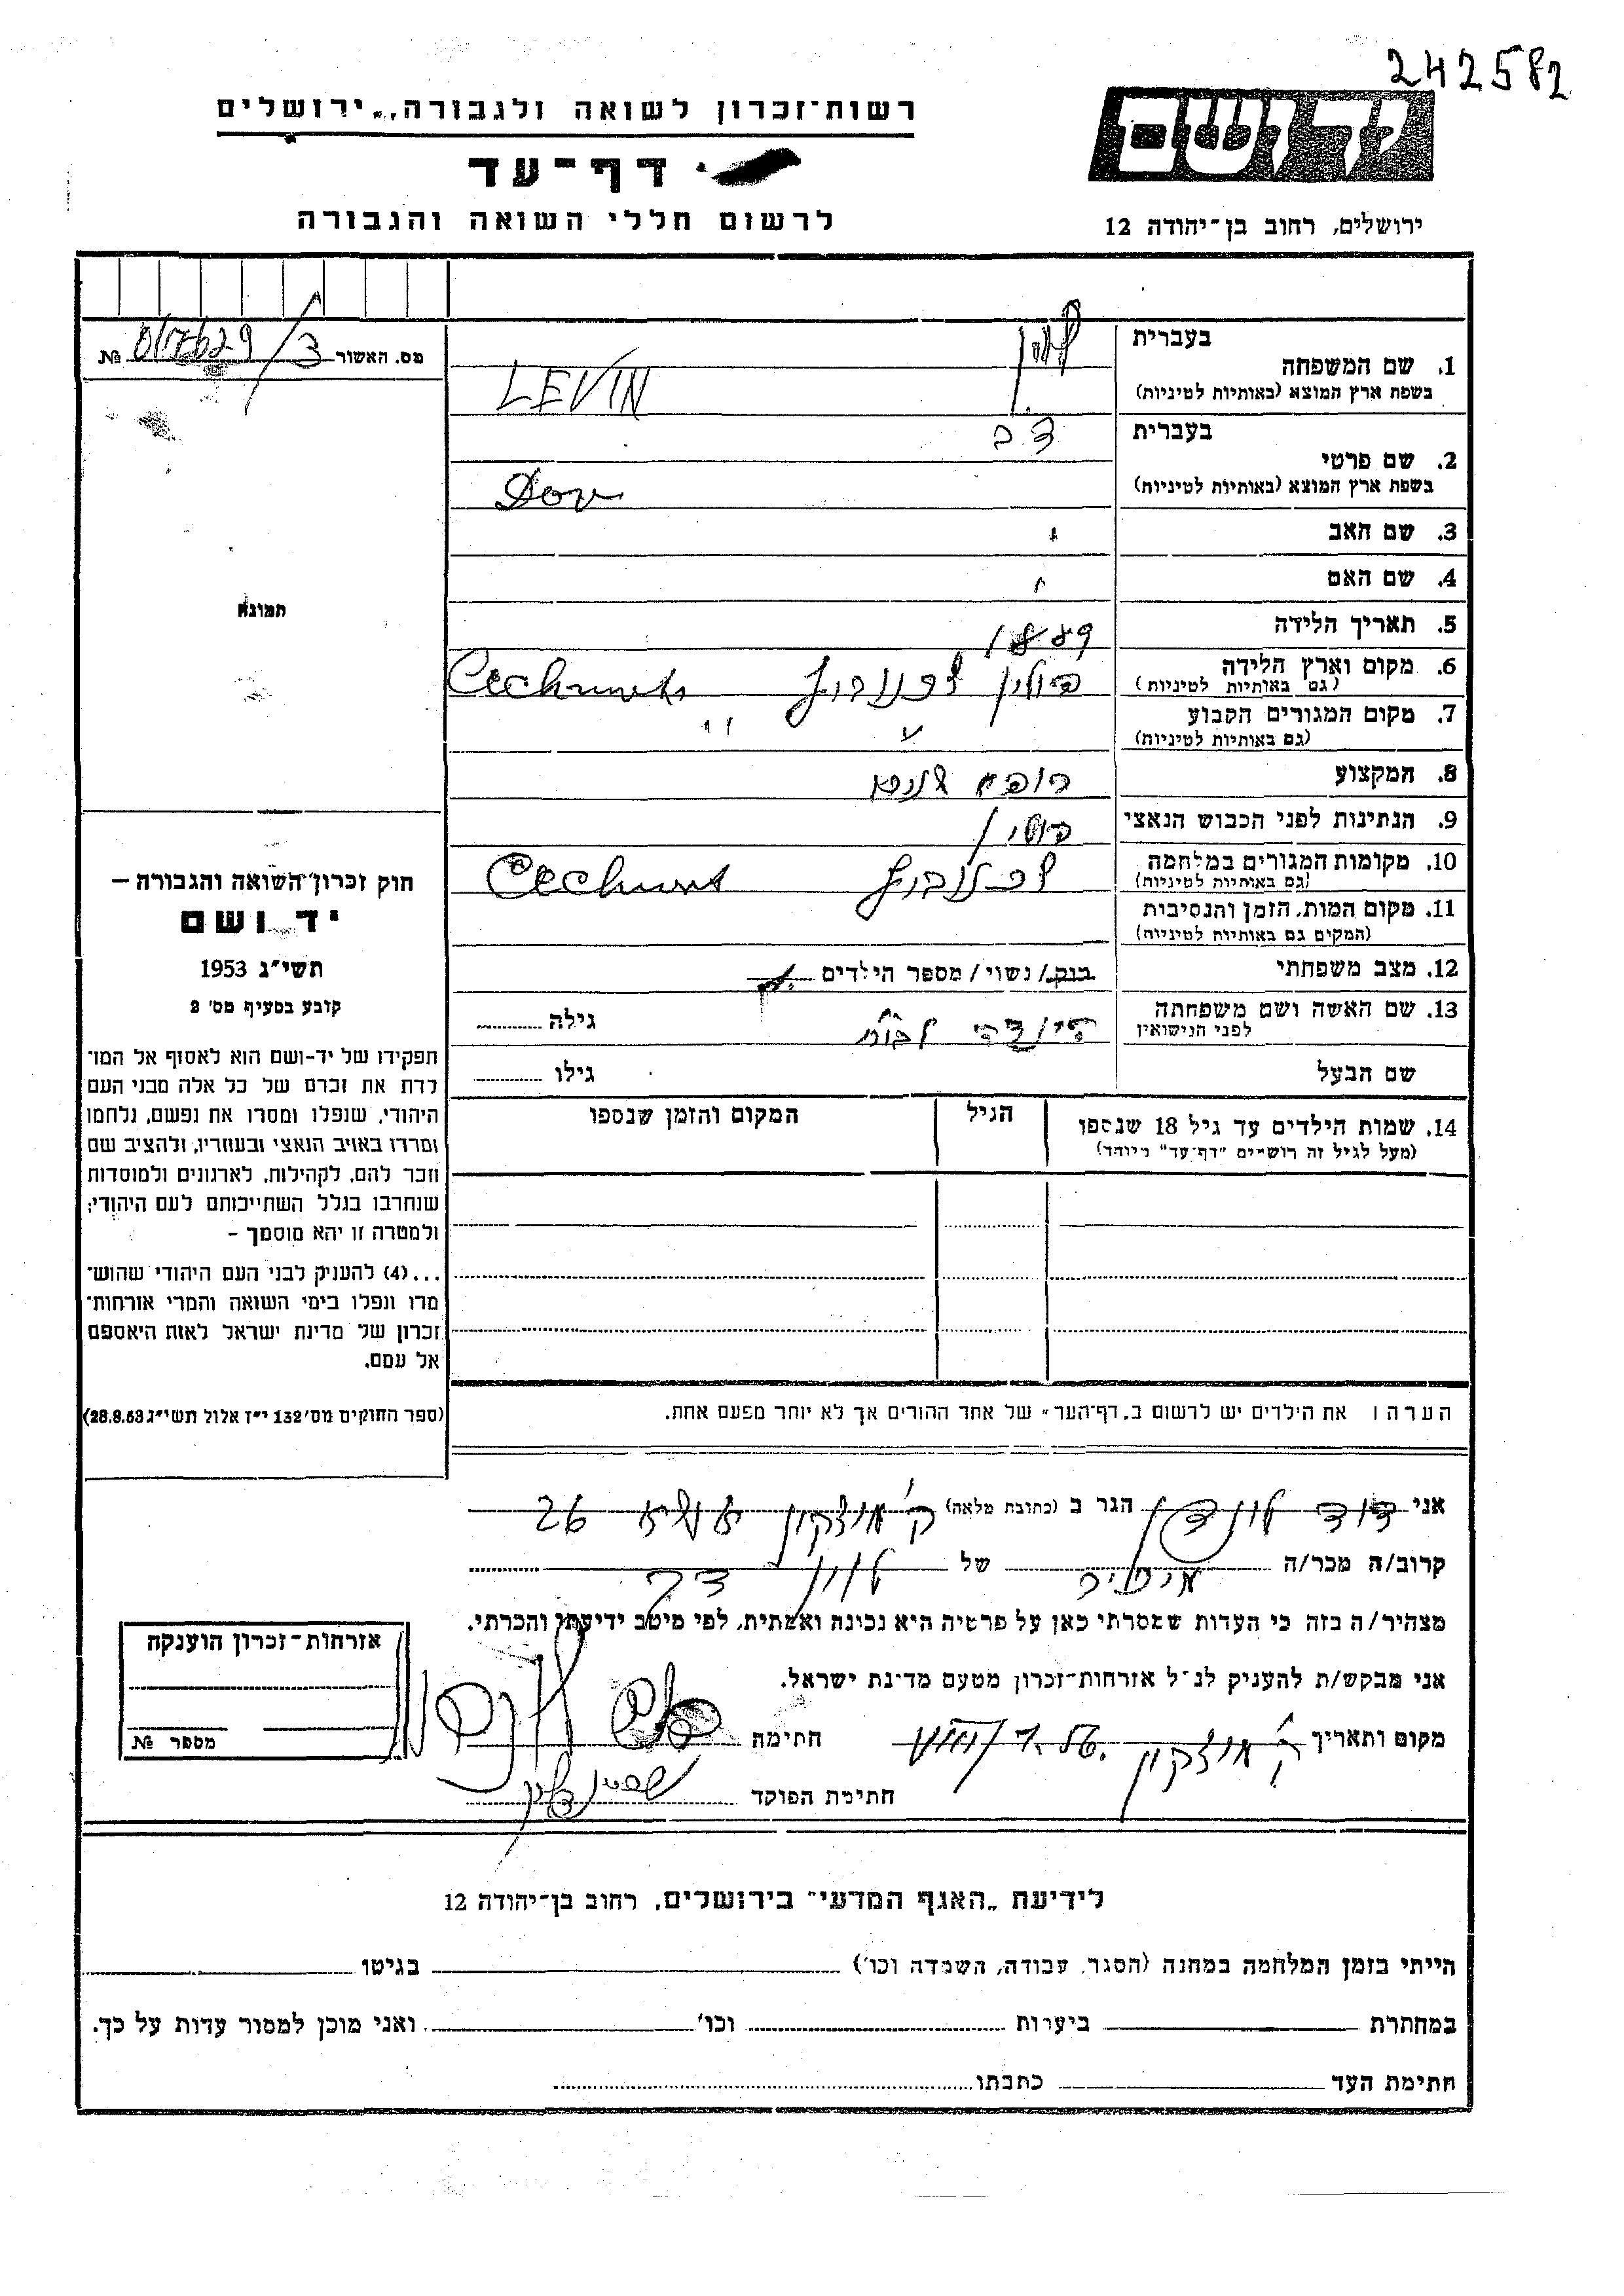 242582
יד ושם
רשות־זכרון לשואה ולגבורה, ירושלים
דף־עד
ירושלים, רחוב בן־יהודה 12
לרשום חללי השואה והגבורה
מס. האשור № 017629/3
1. שם המשפחה
בעברית לוין
בשפת ארץ המוצא (באותיות לטיניות) LEVIN
2. שם פרטי
בעברית דב
בשפת ארץ המוצא (באותיות לטיניות) Dov
3. שם האב
4. שם האם
5. תאריך הלידה 1889
6. מקום וארץ הלידה פולין
(גם באותיות לטיניות)
7. מקום המגורים הקבוע
(גם באותיות לטיניות)
8. המקצוע רופא
9. הנתינות לפני הכבוש הנאצי
10. מקומות המגורים במלחמה
(גם באותיות לטיניות)
11. מקום המות, הזמן והנסיבות
(המקום גם באותיות לטיניות)
12. מצב משפחתי רווק / נשוי / מספר הילדים
13. שם האשה ושם משפחתה
לפני הנישואין
גילה
שם הבעל גילו
14. שמות הילדים עד גיל 18 שנספו הגיל המקום והזמן שנספו
(מעל לגיל זה רושמים "דף־עד" מיוחד)
הערה: את הילדים יש לרשום ב„דף־העד" של אחד ההורים אך לא יותר מפעם אחת.
תמונה
חוק זכרון־השואה והגבורה —
יד ושם
תשי"ג 1953
קובע בסעיף מס' 2
תפקידו של יד-ושם הוא לאסוף אל המו־
לדת את זכרם של כל אלה מבני העם
היהודי, שנפלו ומסרו את נפשם, נלחמו
ומרדו באויב הנאצי ובעוזריו, ולהציב שם
וזכר להם, לקהילות, לארגונים ולמוסדות
שנחרבו בגלל השתייכותם לעם היהודי;
ולמטרה זו יהא מוסמך –
...(4) להעניק לבני העם היהודי שהוש־
מדו ונפלו בימי השואה והמרי אזרחות־
זכרון של מדינת ישראל לאות היאספם
אל עמם.
(ספר החוקים מס' 132 י"ז אלול תשי"ג 28.8.53)
אני דוד הגר ב (כתובת מלאה) ק' מוצקין 26
קרוב/ה מכר/ה של לוין דב
מצהיר/ה בזה כי העדות שמסרתי כאן על פרטיה היא נכונה ואמתית, לפי מיטב ידיעתי והכרתי.
אני מבקש/ת להעניק לנ"ל אזרחות־זכרון מטעם מדינת ישראל.
מקום ותאריך ק' מוצקין חתימה
חתימת הפוקד
אזרחות־זכרון הוענקה
מספר №
לידיעת „האגף המדעי" בירושלים, רחוב בן־יהודה 12
הייתי בזמן המלחמה במחנה (הסגר, עבודה, השמדה וכו') בגיטו
במחתרת ביערות וכו' ואני מוכן למסור עדות על כך.
חתימת העד כתבתו